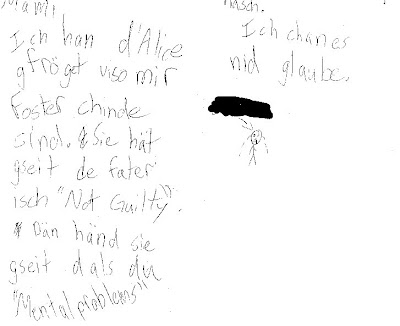 Mami
Ich han d'Alice
gfröget viso mir
Foster chinde
sind. Sie hät
gseit de fater
isch "Not Guilty".
Dän händ sie
gseit dals du
"Mental problems"
hasch.
Ich chan es
nid glaube.